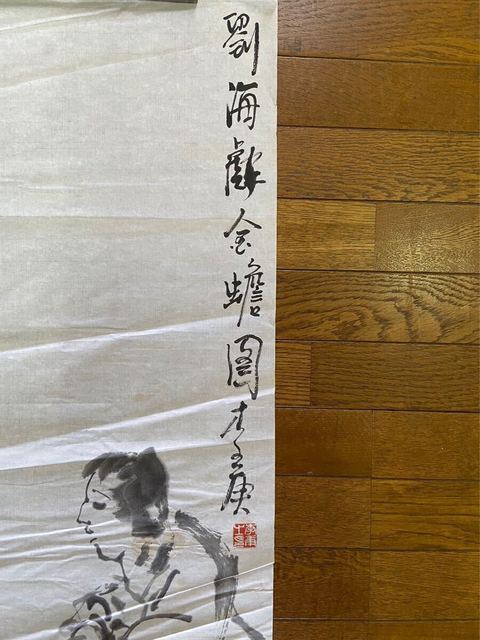 劉海戲金蟾圖李庚